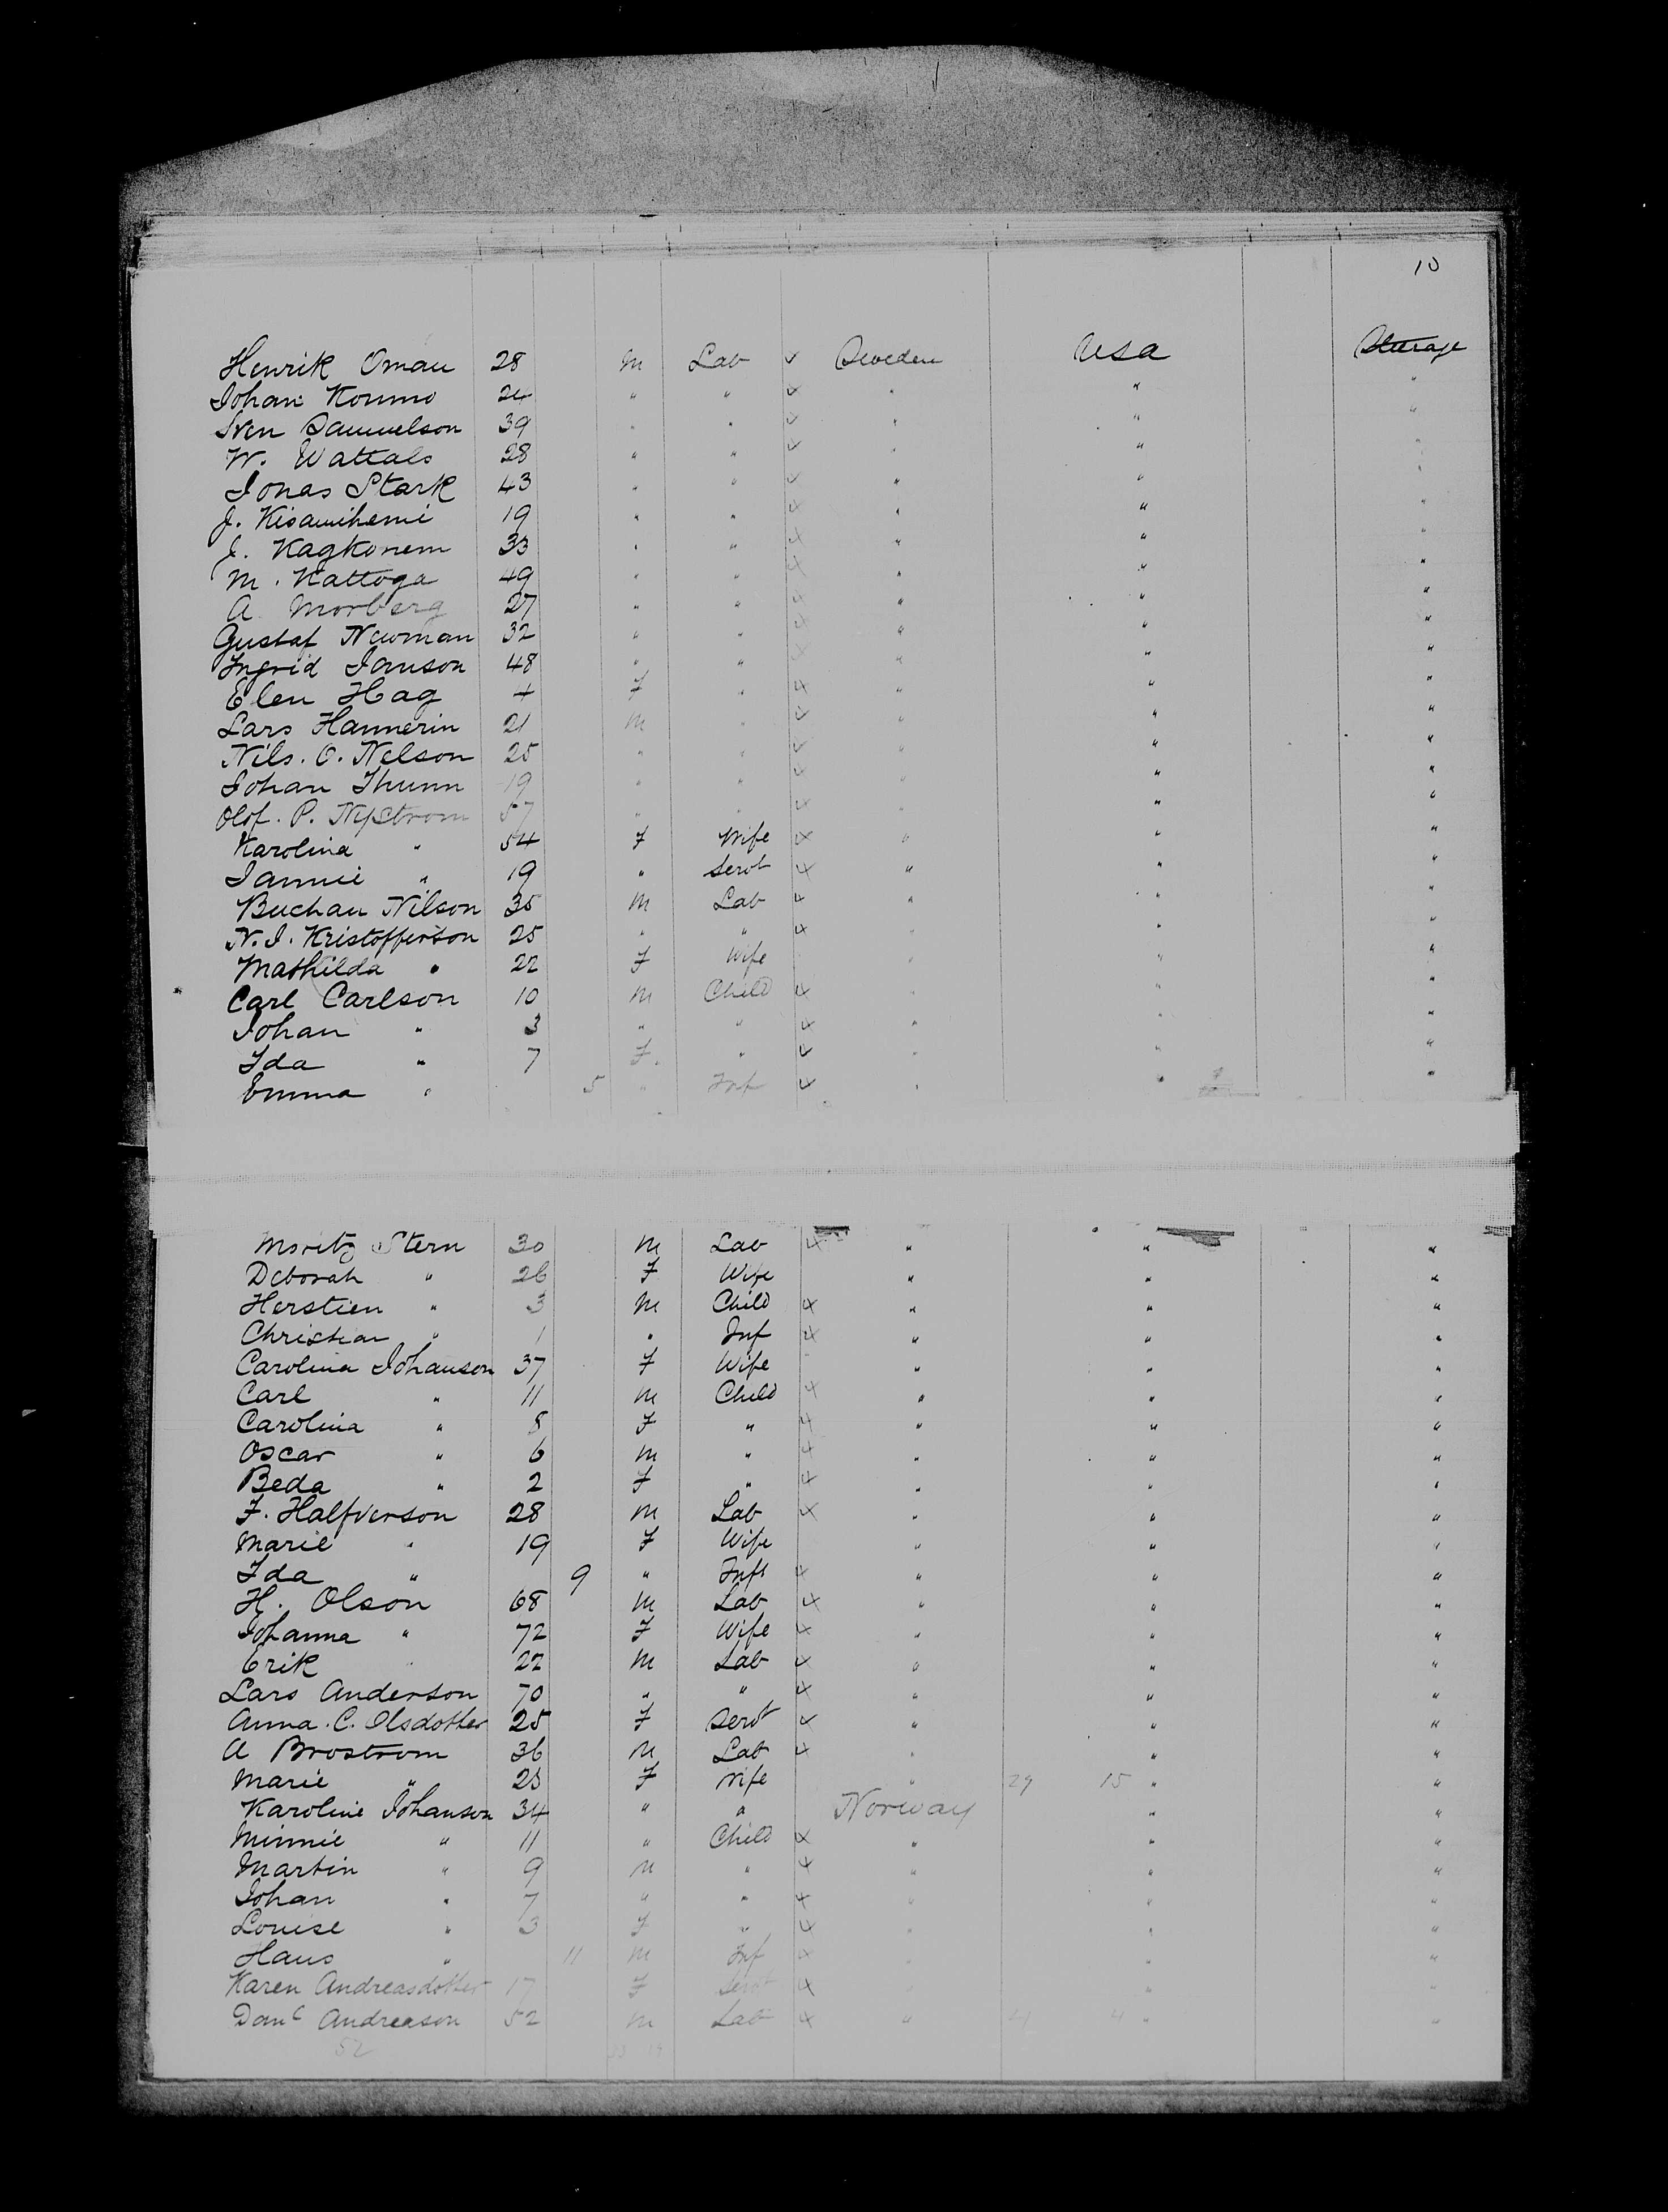 10
Henrik Oman 28 M Lab Sweden USA Steerage
Johan Kommo 24 " " " " "
Sven Samuelson 39 " " " " "
W. Wattals 28 " " " " "
Jonas Stark 43 " " " " "
J. 19 " " " " "
J. Kagkonem 33 " " " " "
M. Kattoga 49 " " " " "
A Morberg 27 " " " " "
Gustaf Newman 32 " " " " "
Ingrid Janson 48 " " " " "
Elen Hag 4 F " " " "
Lars Hannerin 21 M " " " "
Nils. O. Nelson 25 " " " " "
Johan Thunn 19 " " " " "
Olof. P. Nystrom 57 " " " " "
Karolina " 54 F Wife " " "
Jannie " 19 " Servt " " "
Buchan Nilson 35 M Lab " " "
N. J. Kristofferson 25 " " " " "
Mathilda " 22 F Wife " " "
Carl Carlson 10 M Child " " "
Johan " 3 " " " " "
Ida " 7 F. " " " "
Emma " 5 " Inf " " "
Moritz Stern 30 M Lab " " "
Deborah " 26 F Wife " " "
Herstien " 3 M Child " " "
Christian " 1 " Inf " " "
Carolina Johanson 37 F Wife " " "
Carl " 11 M Child " " "
Carolina " 8 F " " " "
Oscar " 6 M " " " "
Beda " 2 F " " " "
F. Halfverson 28 M Lab " " "
Marie " 19 F Wife " " "
Ida " 9 " Inft " " "
H. Olson 68 M Lab " " "
Johanna " 72 F Wife " " "
Erik " 22 M Lab " " "
Lars Anderson 70 " " " " "
Anna. C. Olsdotter 25 F Servt " " "
A Brostrom 36 M Lab " " "
Marie " 23 F Wife " 29 15 " "
Karoline Johanson 34 " " Norway " "
Minnie " 11 " Child " " "
Martin " 9 M " " " "
Johan " 7 " " " " "
Louise " 3 F " " " "
Hans " 11 M Inf " " "
Karen Andreasdotter 17 F Servt " " "
Danl Andreason 52 M Lab " 4 4 " "
52